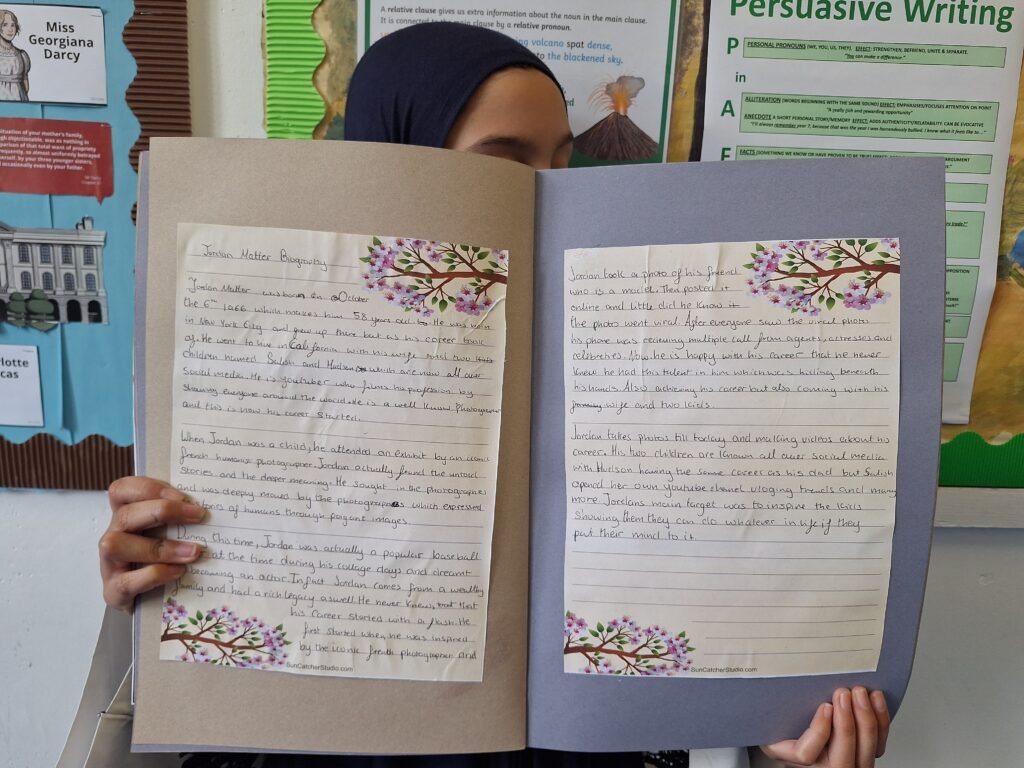 Miss
Georgiana
Darcy
A relative clause gives us extra information about the noun in the main clause.
It is connected to the main clause by a relative pronoun.
volcano spat dense,
to the blackened sky.
Persuasive Writing
P
PERSONAL PRONOUNS (WE, YOU, US, THEY). EFFECT: STRENGTHEN, BEFRIEND, UNITE & SEPARATE.
"You can make a difference."
in
A
ALLITERATION (WORDS BEGINNING WITH THE SAME SOUND) EFFECT: EMPHASISES/FOCUSES ATTENTION ON POINT
"A really fish and rewarding opportunity"
ANECDOTE A SHORT PERSONAL STORY/MEMORY EFFECT: ADDS AUTHENTICITY/RELATABILITY. CAN BE EVOCATIVE
"I'll always remember year 7, because that was the year I was horrendously bullied. I know what it feels like to..."
F
FACTS (SOMETHING WE KNOW OR HAVE PROVEN TO BE TRUE)
ARGUMENT
situation of your mother's family,
objectionable, was as nothing in
comparison of that total want of propriety
frequently, so almost uniformly betrayed
herself, by your three younger sisters,
occasionally even by your father.
Jordan Matter Biography
Jordan Matter was born on October
the 6th 1966 which makes him 58 years old. He was born
in New York City and grew up there but as his career took
of. He went to live in California with his wife and two
children named Salish and Hudson which are now all over
Social media. He is youtuber who films his profession by
showing everyone around the world. He is a well know Photographer
and this is how his career started.
When Jordan was a child, he attended an exhibit by an iconic
french humanis photographer. Jordan actually found the untold
stories and the deeper meaning. He sought in the photographer
and was deeply moved by the photographs which expressed
of humans through poigant images.
During this time, Jordan was actually a popular baseball
at the time during his collage days and dreamt
becoming an actor. Infact Jordan comes from a wealthy
family and had a rich legacy aswell. He never knew, that
his career started with a flash. He
first started when he was inspired
by the iconic french photographer and
SunCatcherStudio.com
Jordan took a photo of his friend
who is a model. Then posted it
online and little did he know it
the photo went viral. After everyone saw the viral photo
his phone was reciving multiple call from agents, actresses and
celebreties. Now he is happy with his career that he never
knew he had this talent in him which was hiding beneath
his hands. Also achieving his career but also coming with his
wife and two kids.
Jordan takes photos till today and making videos about his
career. His two children are known all over social media
with Hudson having the same career as his dad but Salish
opened her own youtube chanel vloging trends and many
more. Jordans main target was to inspire the kids
Showing them they can do whatever in life if they
put their mind to it.
SunCatcherStudio.com